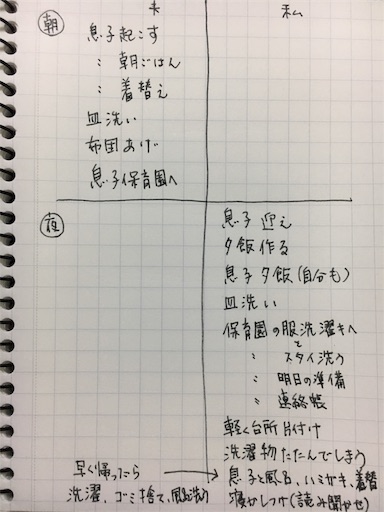 夫 私
朝
息子起こす
〃 朝ごはん
〃 着替え
皿洗い
布団あげ
息子保育園へ
夜
息子 迎え
夕飯 作る
息子 夕飯(自分も)
皿洗い
保育園の服洗濯キへ
〃 と スタイ洗う
〃 明日の準備
〃 連絡帳
軽く台所片付け
洗濯物たたんでしまう
早く帰ったら → 息子と風呂、ハミガキ、着替
洗濯、ゴミ捨て、風呂洗う 寝かしつけ(読み聞かせ)